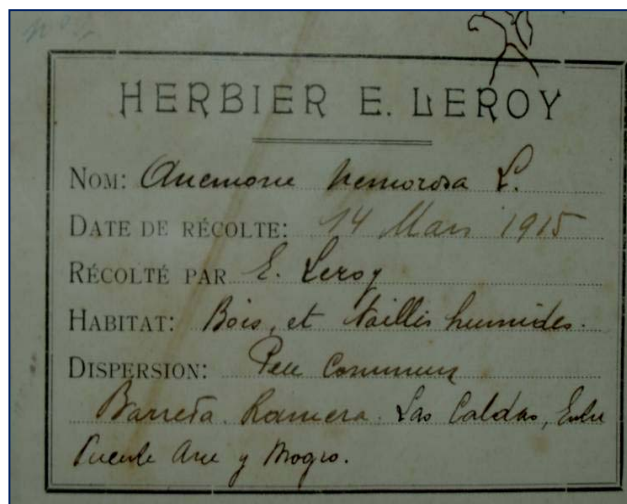 HERBIER E. LEROY
NOM: Anemone nemorosa L.
DATE DE RÉCOLTE: 14 Mars 1915
RÉCOLTÉ PAR E. Leroy
HABITAT: Bois, et taillis humides.
DISPERSION: Peu Commun
Barreda. Ramera. Las Caldas, Entre
Puente Arce y Mogro.